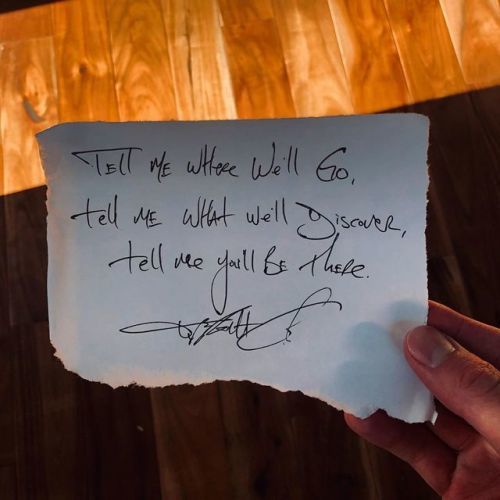 Tell me where we'll go,
tell me what we'll discover,
tell me you'll be there.